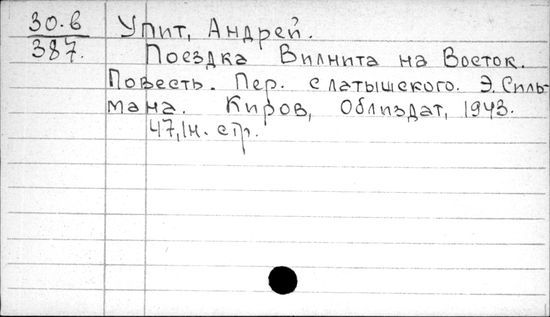 30.6
387.
Упит, Андрей.
Поездка Вилнита на Восток.
Повесть. Пер. с латышского. Э. Силь-
мана. Киров, Облиздат, 1943.
47,1н. стр.